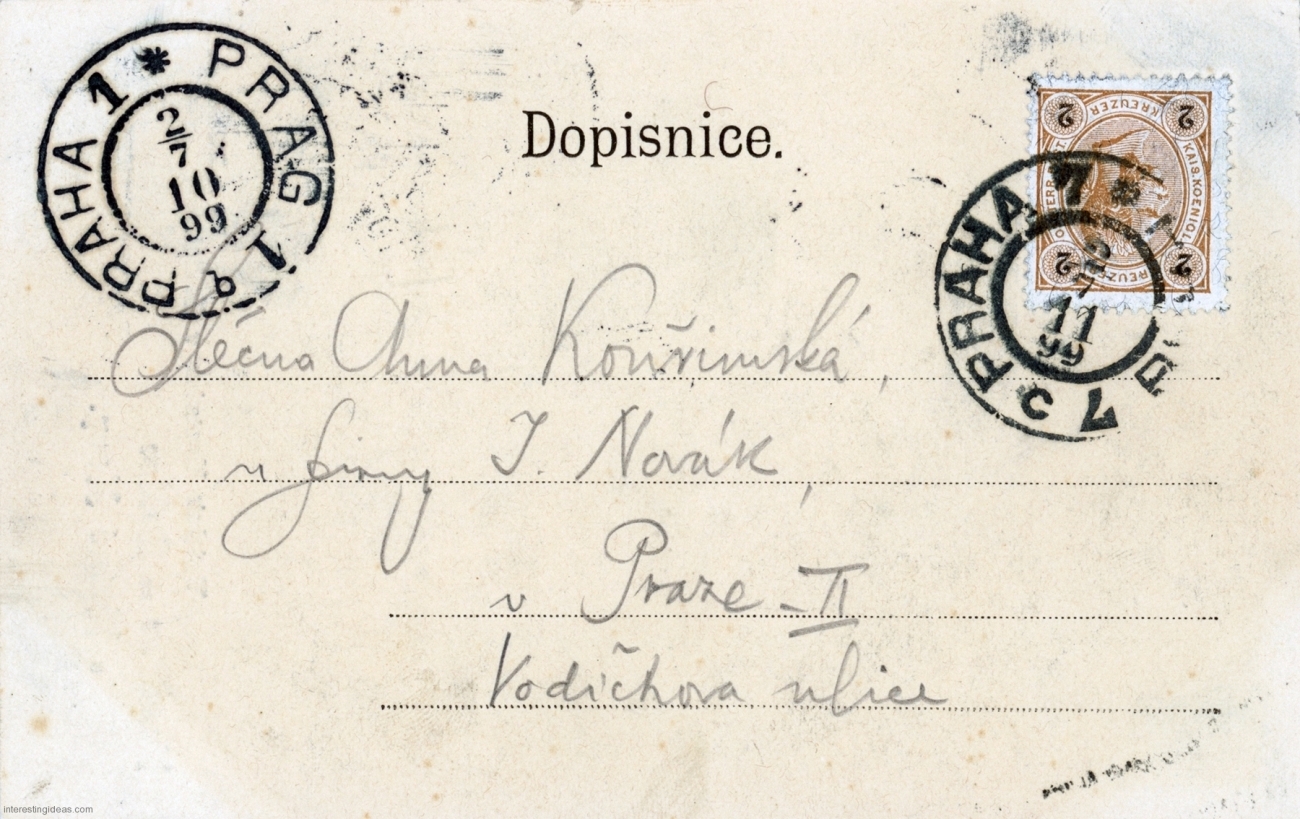 PRAHA 1 * PRAG 1
2/7
10
99
Dopisnice.
2 KREUZER 2
KAIS.KOENIGL
2 2
PRAHA 7 *
11
99
7 c
Slečna Anna Kouřimská,
u firmy J. Novák,
v Praze-II
Vodičkova ulice
interestingideas.com